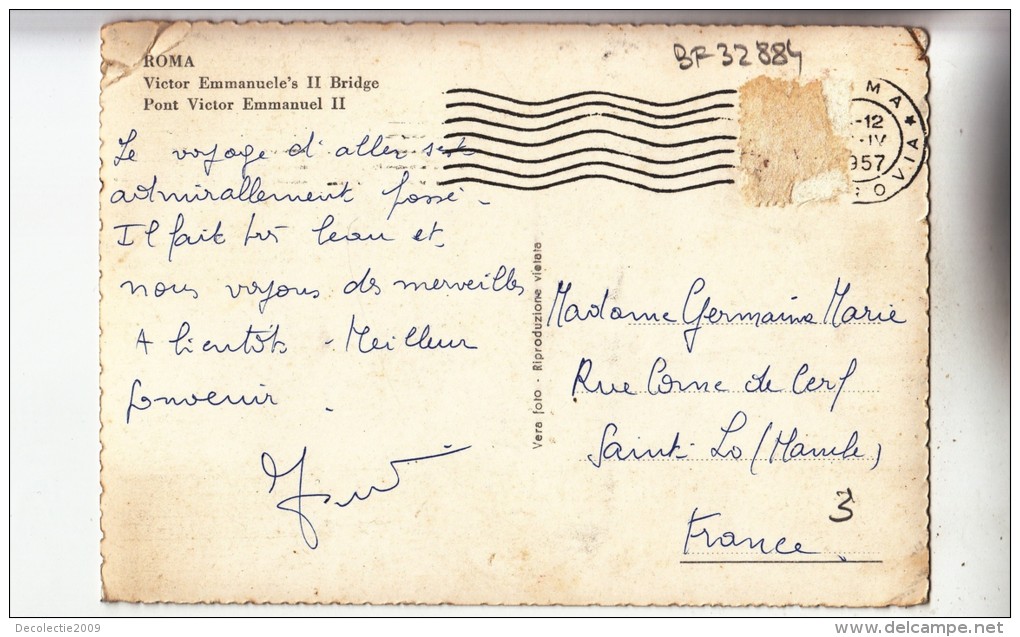 ROMA
Victor Emmanuele's II Bridge
Pont Victor Emmanuel II
BF-32884
MA ★
-12
-IV
1957
OVIA
Le voyage d'aller s'est
admirallement passé.
Il fait très beau et
nous voyons des merveilles
A bientôt - Meilleur
souvenir.
Vera foto - Riproduzione vietata
Madame Germaine Marie
Rue Corne de Cerf
Saint-Lo (Manche)
3
France
Decolectie2009
www.delcampe.net